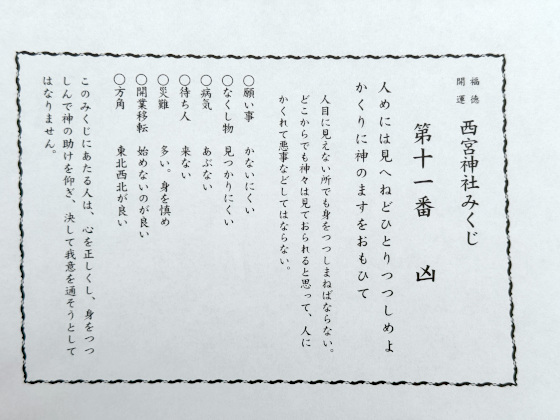 福徳
開運
西宮神社みくじ
第十一番 凶
人めには見へねどひとりつつしめよ
かくりに神のますをおもひて
人目に見えない所でも身をつつしまねばならない。
どこからでも神々は見ておられると思って、人に
かくれて悪事などしてはならない。
〇願い事 かないにくい
〇なくし物 見つかりにくい
〇病気 あぶない
〇待ち人 来ない
〇災難 多い。身を慎め
〇開業移転 始めないのが良い
〇方角 東北西北が良い
このみくじにあたる人は、心を正しくし、身をつつ
しんで神の助けを仰ぎ、決して我意を通そうとして
はなりません。